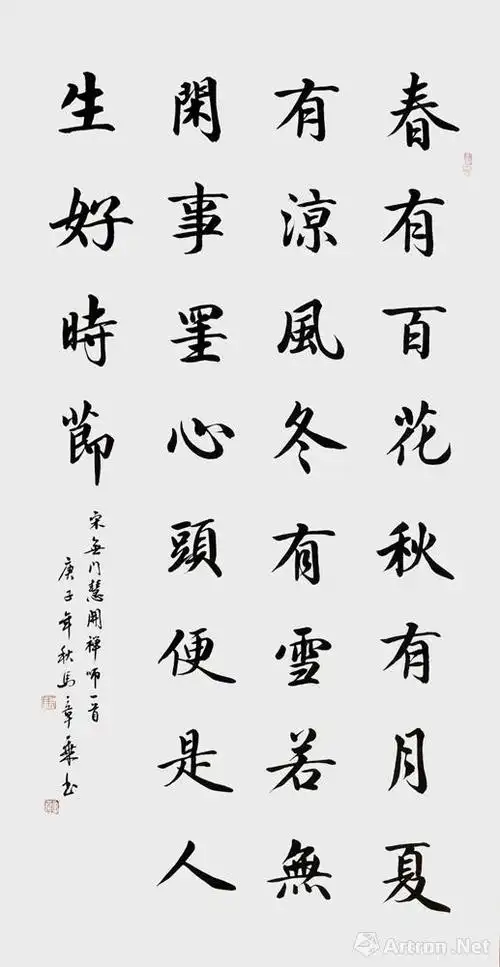 春有百花秋有月夏
有涼風冬有雪若無
閑事罣心頭便是人
生好時節
宋無门慧開禪師一首
庚子年秋馬章乘书
Artron.Net